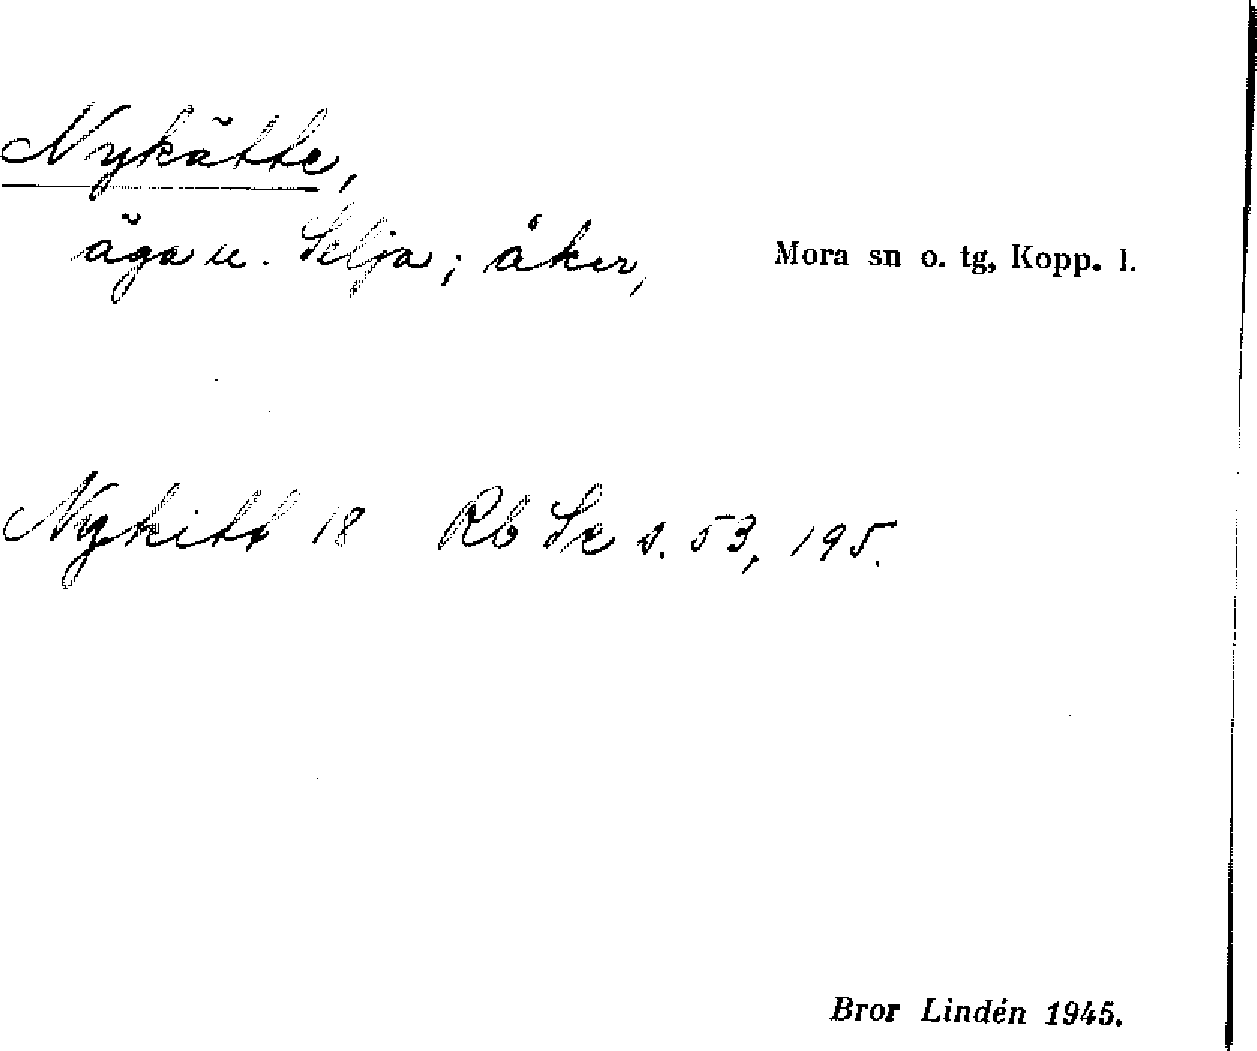 Nykätte,
äga u. Selja; åker, Mora sn o. tg, Kopp. l.
Nykitt 18 Rb Se s. 53, 195.
Bror Lindén 1945.